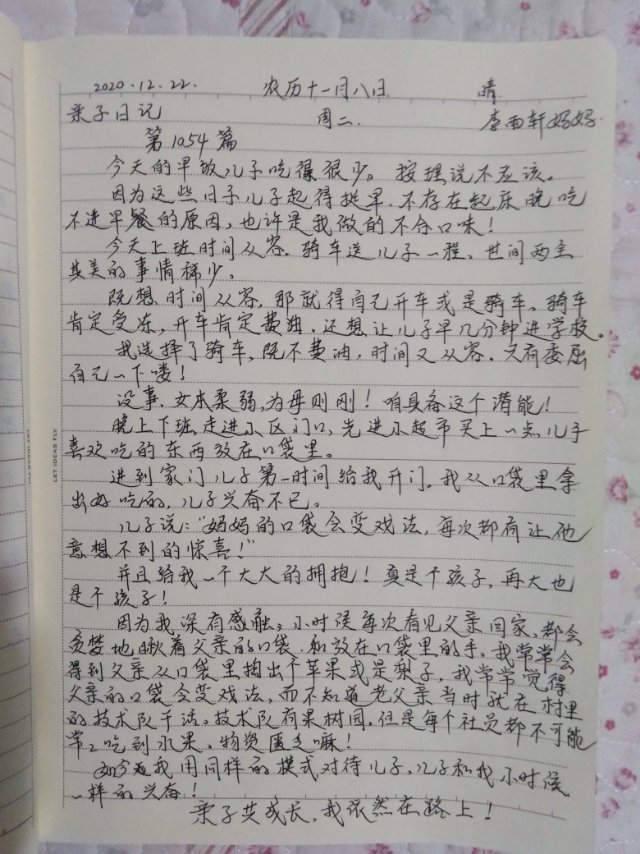 2020.12.22. 农历十一月八日 晴
亲子日记 周二. 李雨轩妈妈.
第1054篇
今天的早饭儿子吃得很少。按理说不应该。
因为这些日子儿子起得挺早.不存在起床晚吃
不进早餐的原因,也许是我做的不合口味!
今天上班时间从容.骑车送儿子一程。世间两全
其美的事情稀少。
既想时间从容.那就得自己开车或是骑车。骑车
肯定受冻,开车肯定费油.还想让儿子早几分钟进学校。
我选择了骑车,既不费油,时间又从容.只有委屈
自己一下喽!
没事.女本柔弱,为母则刚!咱具备这个潜能!
晚上下班走进小区门口,先进小超市买上一点儿子
喜欢吃的东西放在口袋里。
进到家门儿子第一时间给我开门。我从口袋里拿
出好吃的,儿子兴奋不已。
儿子说:"妈妈的口袋会变戏法,每次都有让他
意想不到的惊喜!"
并且给我一个大大的拥抱!真是个孩子,再大也
是个孩子!
因为我深有感触。小时候每次看见父亲回家,都会
贪婪地瞅着父亲的口袋.和放在口袋里的手。我常常会
得到父亲从口袋里掏出个苹果或是梨子,我常常觉得
父亲的口袋会变戏法,而不知道老父亲当时就在村里
的技术队干活。技术队有果树园,但是每个社员都不可能
常常吃到水果。物资匮乏嘛!
如今我用同样的模式对待儿子。儿子和我小时候
一样的兴奋!
亲子共成长,我依然在路上!
LET IDEAS FLY